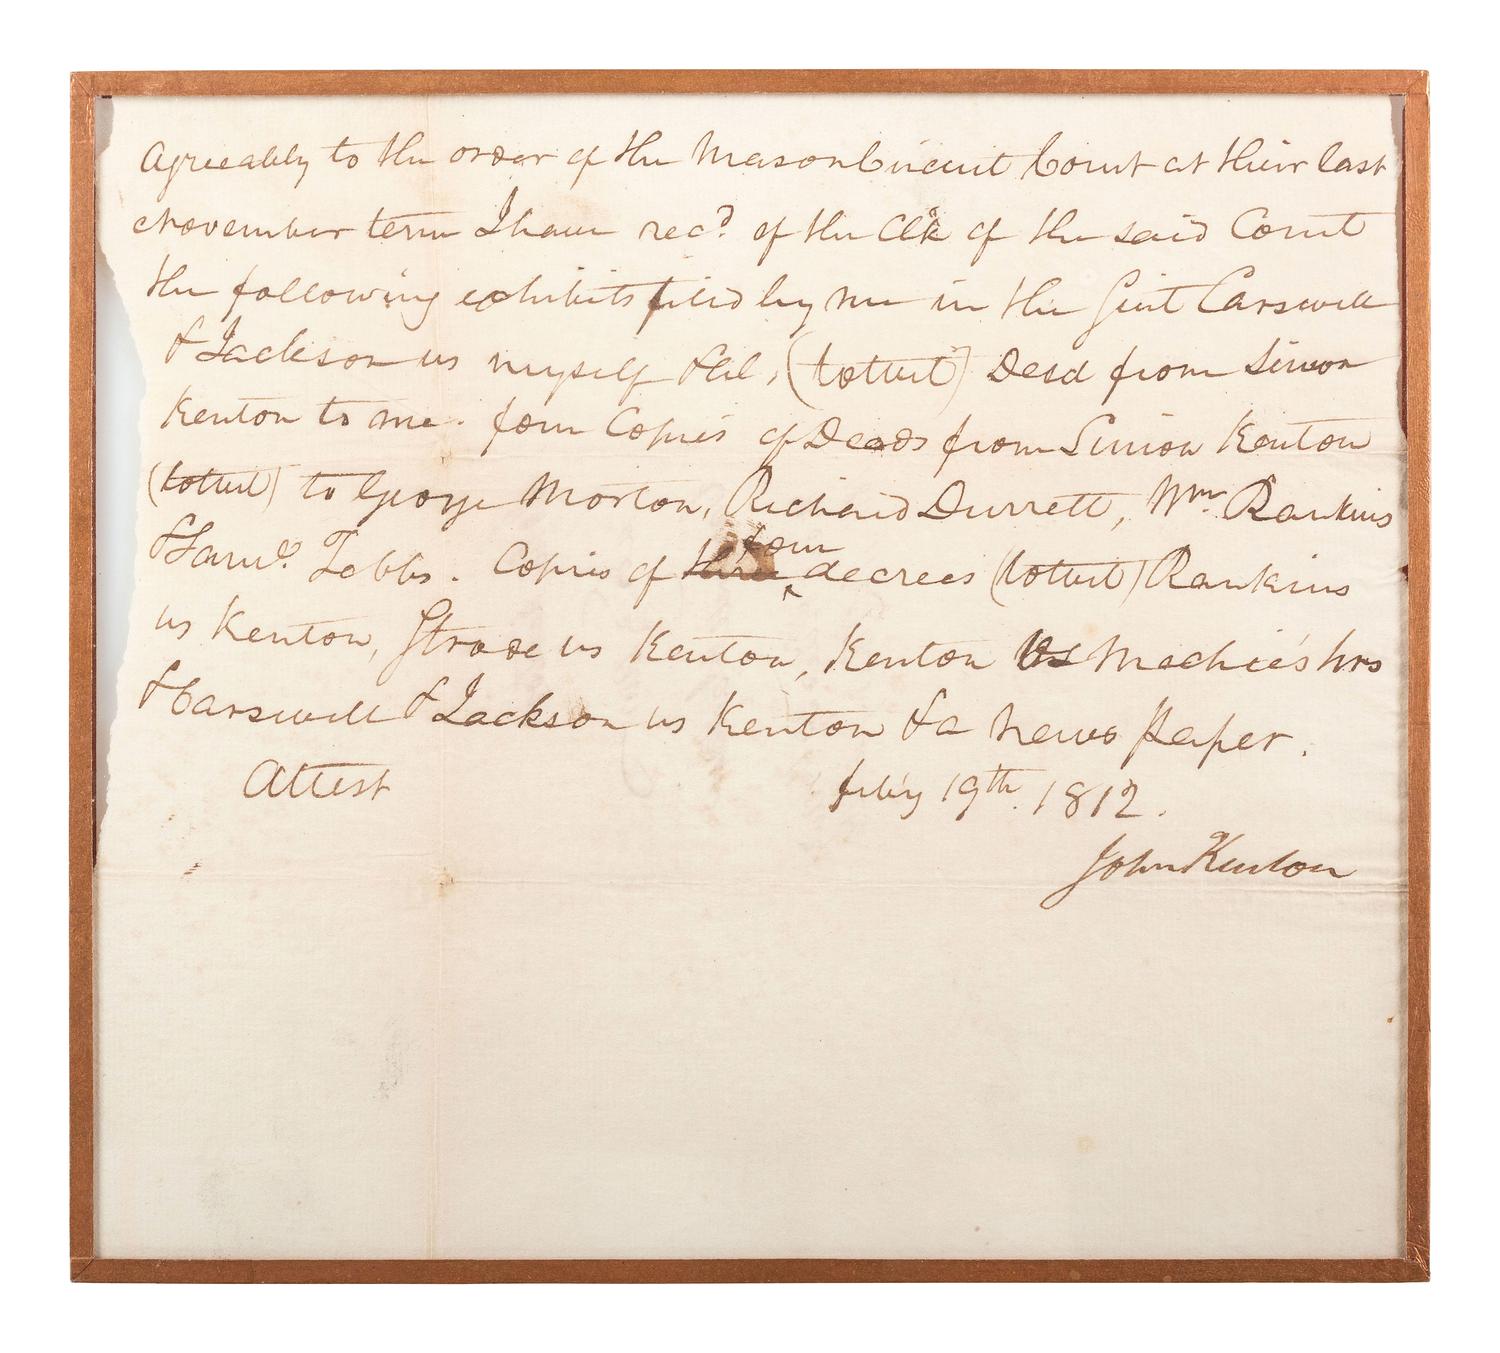 Agreeably to the order of the Mason Circuit Court at their last
November term I have recd. of the Clk of the said Court
the following exhibits filed by me in the suit Carswell
& Jackson vs myself &al, (towit) Deed from Simon
Kenton to me. four Copies of Deeds from Simon Kenton
(towit) to George Morton, Richard Durrett, Wm. Rankins
& Saml. Tebbs. Copies of three four decrees (towit) Rankins
vs Kenton, Strode vs Kenton, Kenton vs Mechie's hrs
& Carswell & Jackson vs Kenton & a News Paper.
Attest feby 19th. 1812.
John Kenton